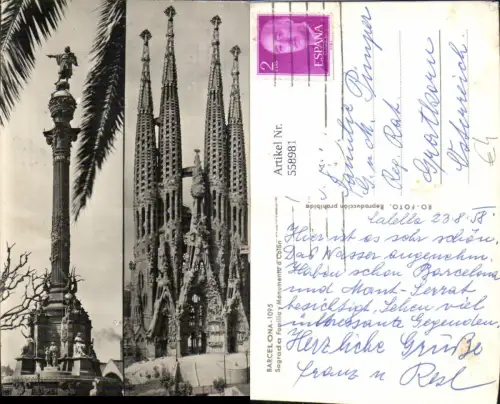 2
PTAS
ESPAÑA
Artikel Nr.
558981
Familie
Reg. Rat
Österreich
BARCELONA - 1095
Sagrada Familia y Monumento a Colón
EO-FOTO. Reproducción prohibida
Calella 23-8-58
Hier ist es sehr schön.
Das Wasser angenehm.
Haben schon Barcelona
und Mont-Serrat
besichtigt, Sehen viel
interessante Gegenden.
Herzliche Grüße
Franz u Resl